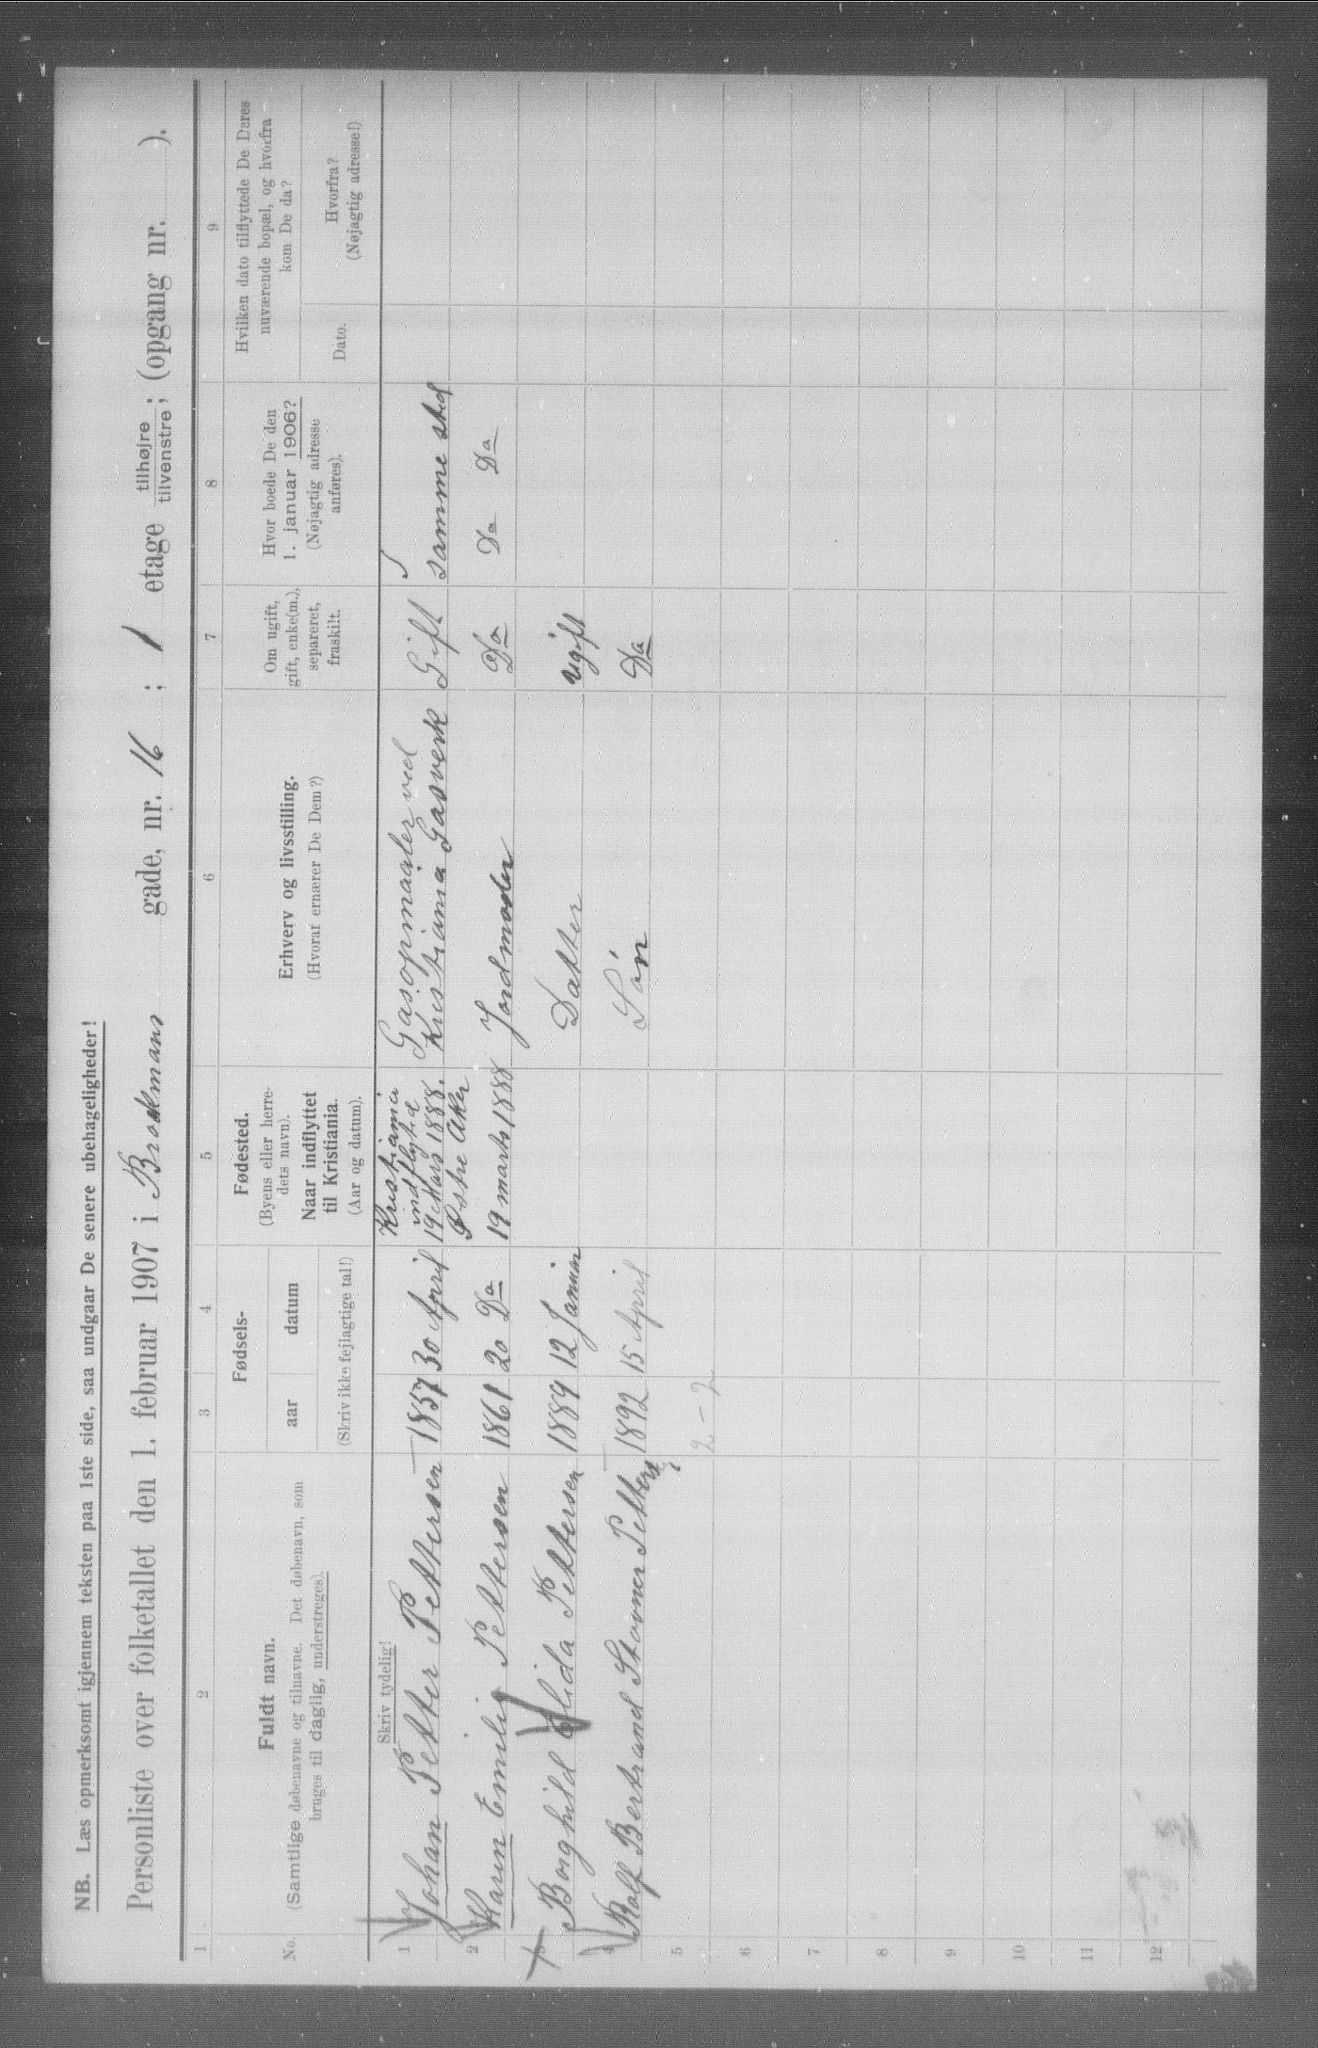 NB. Læs opmerksomt igjennem teksten paa 1ste side, saa undgaar De senere ubehageligheder!
Personliste over folketallet den 1. februar 1907 i Brockmans gade, nr. 16 ; 1 etage tilhøjre ; tilvenstre ; (opgang nr. ).
1 2 3 4 5 6 7 8 9
No.
Fuldt navn.
(Samtlige døbenavne og tilnavne. Det døbenavn, som
bruges til daglig, understreges).
Fødsels-
aar datum
(Skriv ikke fejlagtige tal!)
Fødested.
(Byens eller herre-
dets navn).
Naar indflyttet
til Kristiania.
(Aar og datum).
Erhverv og livsstilling.
(Hvoraf ernærer De Dem?)
Om ugift,
gift, enke(m.),
separeret,
fraskilt.
Hvor boede De den
1. januar 1906?
(Nøjagtig adresse
anføres).
Hvilken dato tilflyttede De Deres
nuværende bopæl, og hvorfra
kom De da?
Dato.
Hvorfra?
(Nøjagtig adresse!)
Skriv tydelig!
1 Johan Petter Pettersen 1857 30 April Kristiania indflyted 19 Mars 1888. Gasopmaaler ved Kristiania Gasverk Gift samme sted
2 Karen Emilie Pettersen 1861 20 Da Østre Aker 19 marts 1888 Jordmoder Da Da Da
3 Borghild Elida Pettersen 1889 12 Januar Datter ugift
4 Rolf Bertrand Stovner Petters 1892 15 April Søn Da
5 2 - 2
6
7
8
9
10
11
12